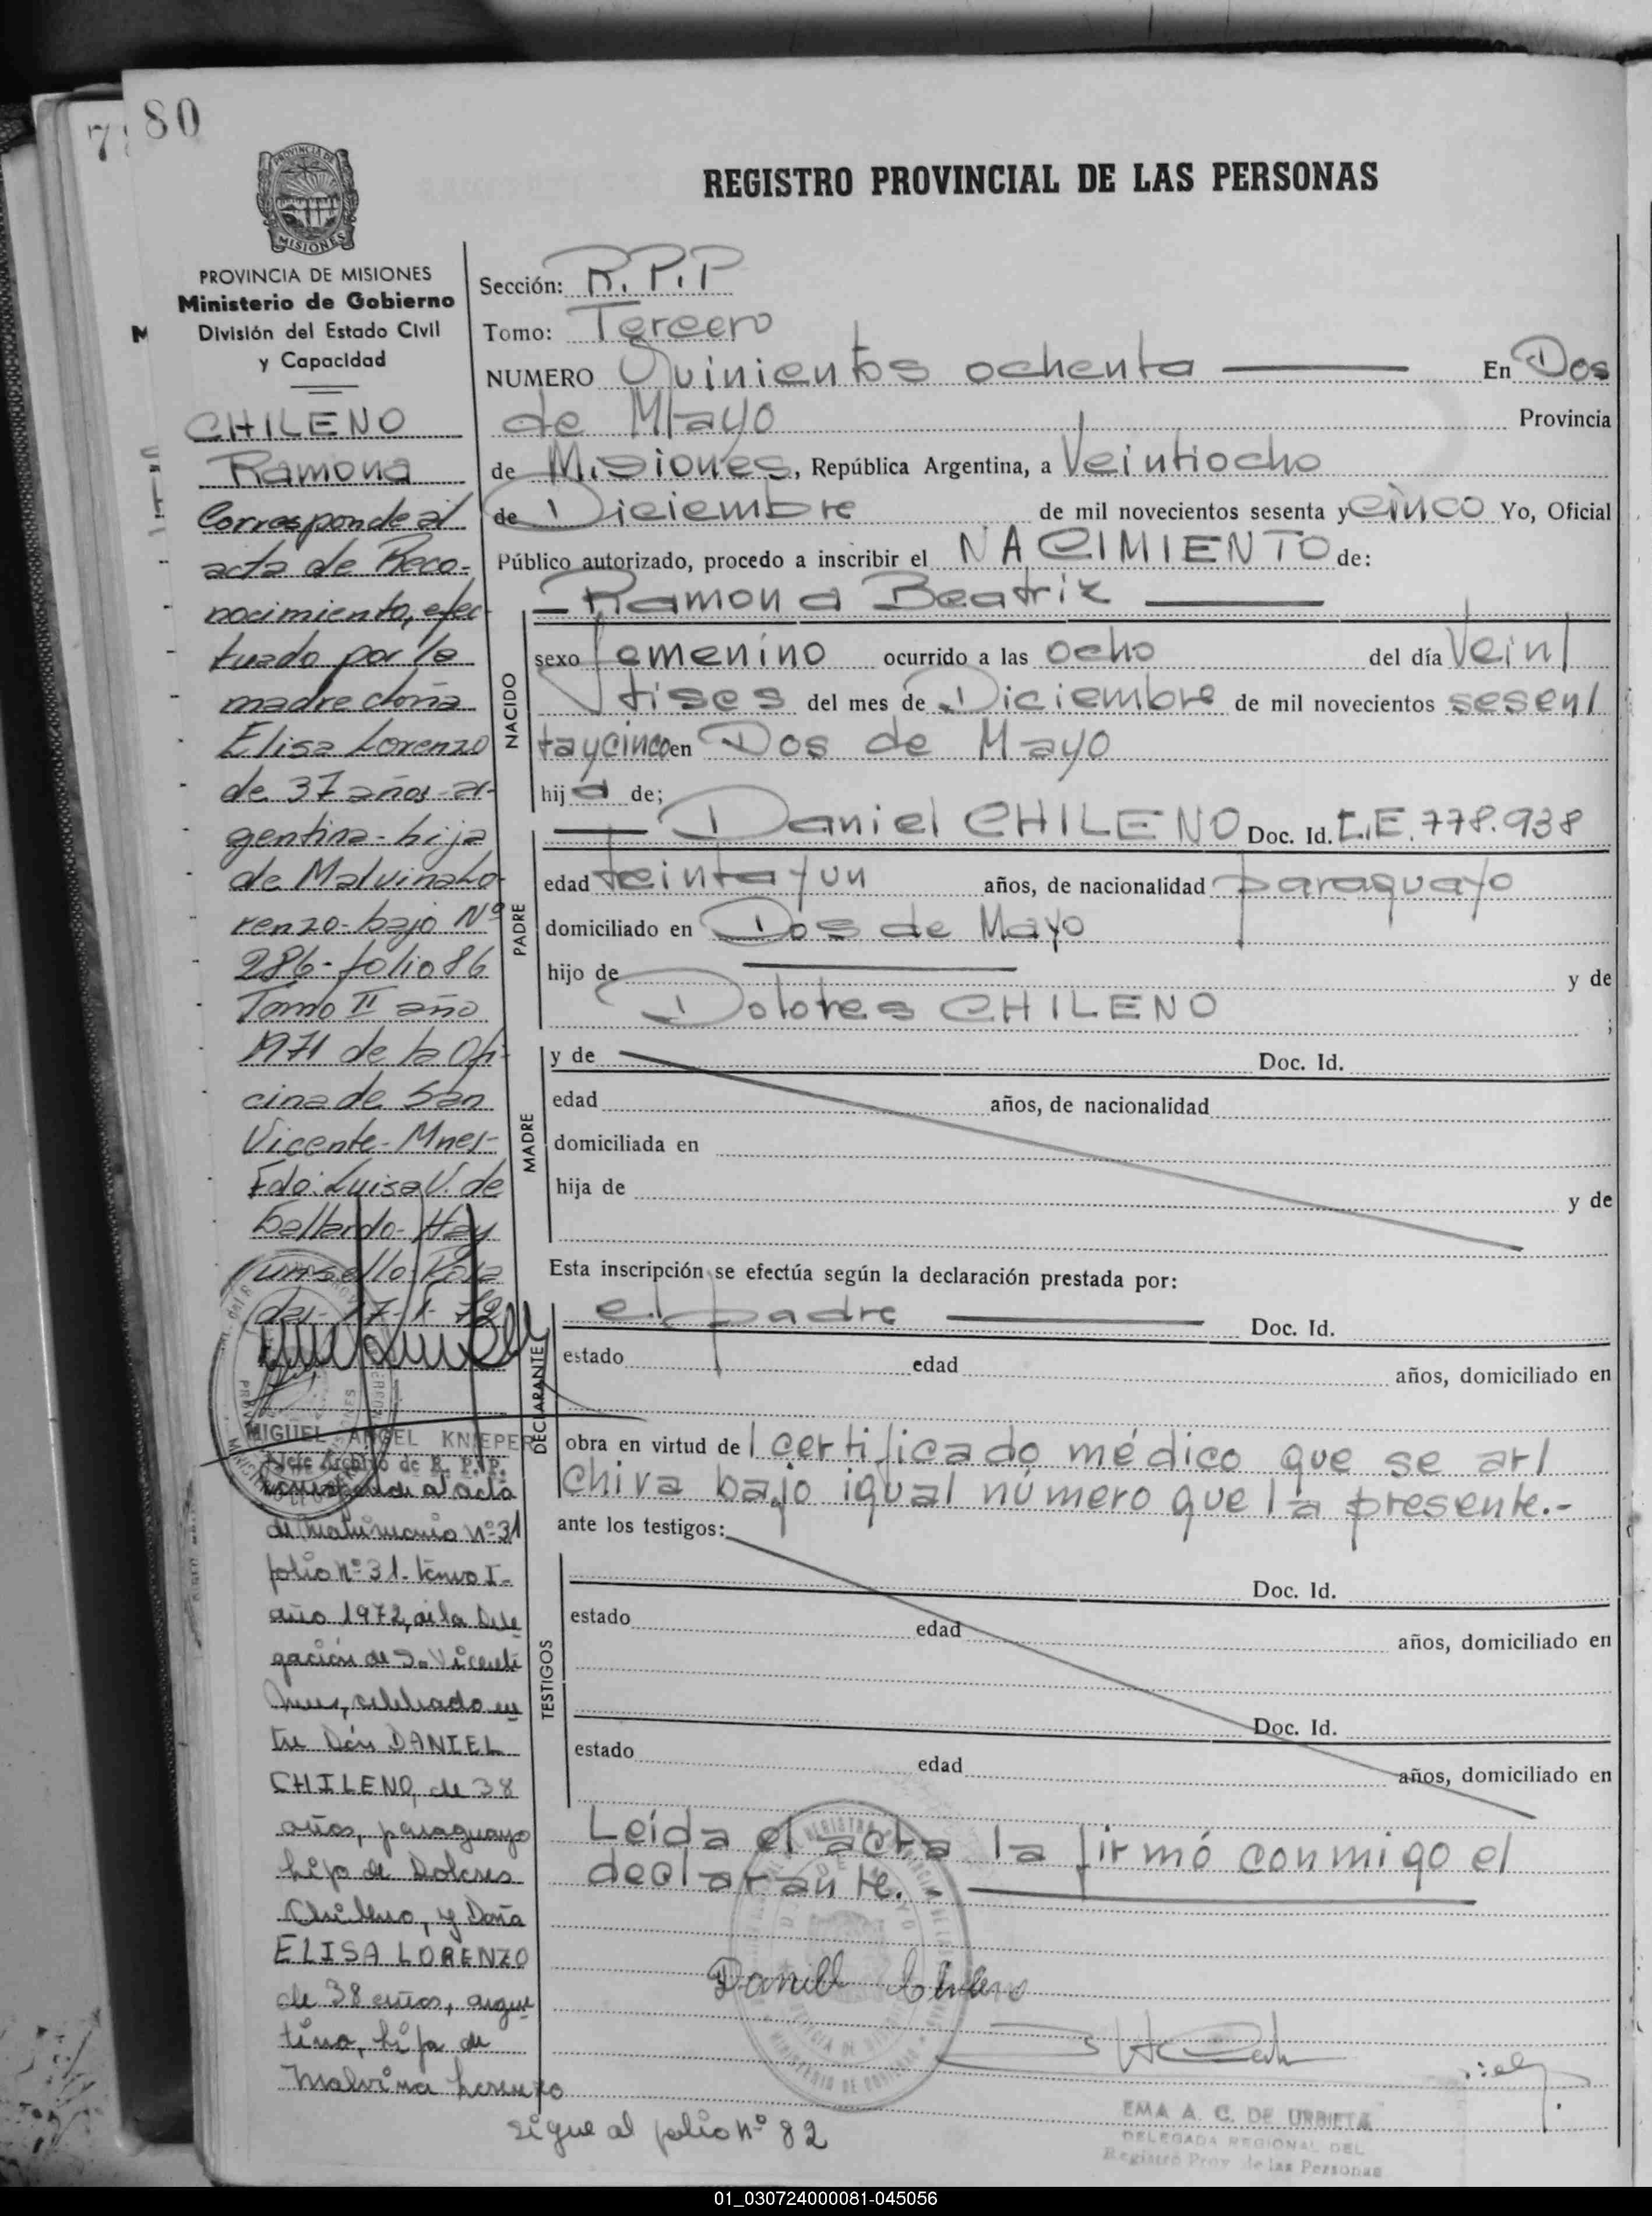 80
7
PROVINCIA DE
MISIONES
REGISTRO PROVINCIAL DE LAS PERSONAS
PROVINCIA DE MISIONES
Ministerio de Gobierno
División del Estado Civil
y Capacidad
M
CHILENO
Ramona
Corresponde al
acta de Reco-
nocimiento, efec-
tuado por la
madre doña
Elisa Lorenzo
de 37 años-ar-
gentina-hija
de Malvina Lo-
renzo-bajo Nº
286-folio 86
Tomo II año
1971 de la Ofi-
cina de San
Vicente-Mnes-
Fdo. Luisa V. de
Gallardo-Hay
un sello. Posa
das-17-1-72
MIGUEL ANGEL KNIEPER
Jefe Archivo de R. P. P.
Corresponde al acta
de Matrimonio nº31
folio nº31. tomo I-
año 1972, de la Dele
gación de S. Vicente
Mnes, celebrado en
tre Don DANIEL
CHILENO, de 38
años, paraguayo
hijo de Dolores
Chileno, y Doña
ELISA LORENZO
de 38 años, argen
tina, hija de
Malvina Lorenzo
sigue al folio nº 82
Sección: R.P.P
Tomo: Tercero
NUMERO Quinientos ochenta En Dos
de Mayo Provincia
de Misiones, República Argentina, a Veintiocho
de Diciembre de mil novecientos sesenta y cinco Yo, Oficial
Público autorizado, procedo a inscribir el NACIMIENTO de:
Ramona Beatriz
NACIDO
sexo femenino ocurrido a las ocho del día Vein/
tises del mes de Diciembre de mil novecientos sesen/
taycinco en Dos de Mayo
hija de;
PADRE
Daniel CHILENO Doc. Id. C.E. 778.938
edad treinta y un años, de nacionalidad paraguayo
domiciliado en Dos de Mayo
hijo de y de
Dolores CHILENO ;
MADRE
y de Doc. Id.
edad años, de nacionalidad
domiciliada en
hija de y de
Esta inscripción se efectúa según la declaración prestada por:
DECLARANTE
el padre Doc. Id.
estado edad años, domiciliado en
obra en virtud del certificado médico que se ar/
chiva bajo igual número que la presente.-
ante los testigos:
TESTIGOS
Doc. Id.
estado edad años, domiciliado en
Doc. Id.
estado edad años, domiciliado en
Leída el acta la firmó conmigo el
declarante.-
Daniel Chileno
EMA A. C. DE URRIETA
DELEGADA REGIONAL DEL
Registro Prov. de las Personas
01_030724000081-045056